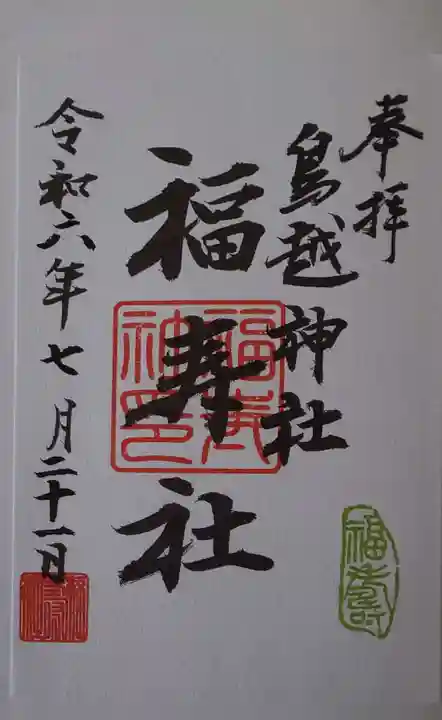 奉拝
鳥越神社
福寿社
令和六年七月二十一日
福壽